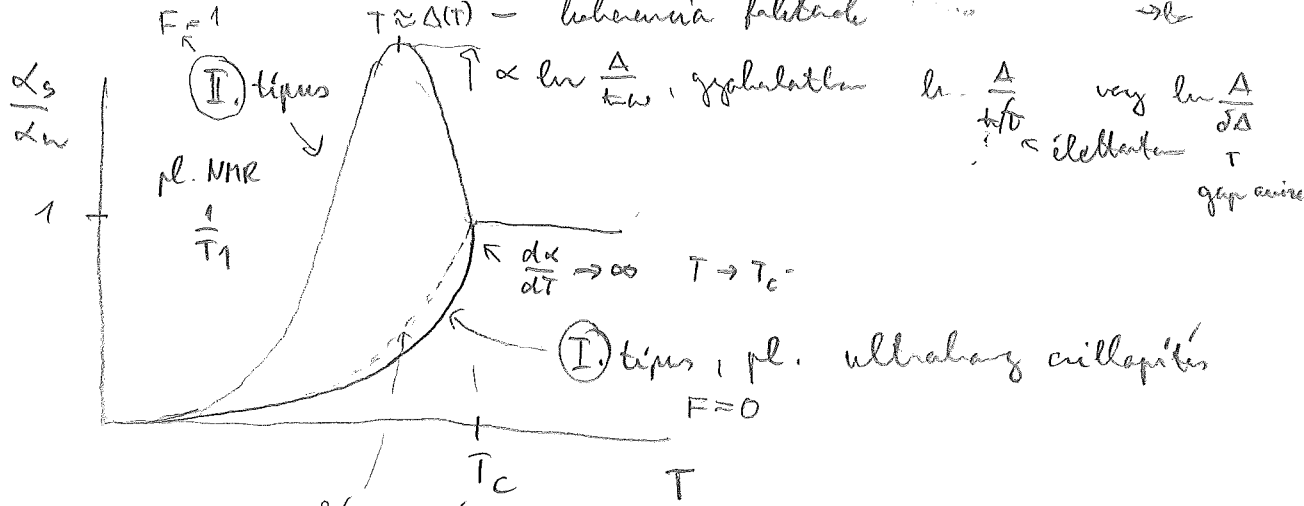 F=1 T≈Δ(T) – koherencia faktorok
II. típus ∝ ln Δ/ħω, gyakorlatban ln Δ/ħ/τ vagy ln Δ/δΔ
αs/αn
élettartam
pl. NMR
gap
1
1/T1
dα/dT → ∞ T → Tc-
I. típus, pl. ultrahang csillapítás
F=0
Tc
T